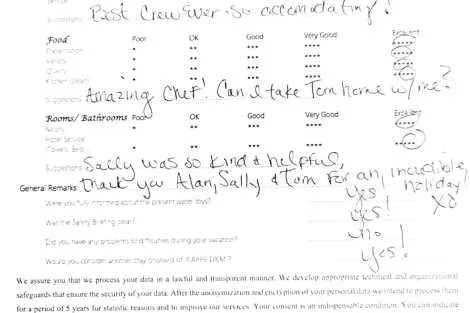 Suggestions Best Crew Ever - so accomodating!
Food Poor OK Good Very Good Excellent
Presentation • •• ••• •••• •••••
Variety • •• ••• •••• •••••
Quality • •• ••• •••• •••••
Kitchen • •• ••• •••• •••••
Suggestions Amazing Chef! Can I take Tom home w/me?
Rooms/ Bathrooms Poor OK Good Very Good Excellent
• •• ••• •••• •••••
Hotel Service
Towels, Bed • •• ••• •••• •••••
Suggestions Sally was so kind & helpful,
General Remarks Thank you Alan, Sally & Tom for an incredible holiday! XO
Were you fully informed about the present water toys? Yes!
Was the Safety Briefing clear? Yes!
Did you have any problems or difficulties during your vacation? no!
Would you consider another stay onboard of CARPE DIEM? Yes!
We assure you that we process your data in a lawful and transparent manner. We develop appropriate technical and organizational
safeguards that ensure the security of your data. After the anonymization and encryption of your personal data we intend to process them
for a period of 5 years for statistic reasons and to improve our services. Your consent is an indispensable condition. You can indicate